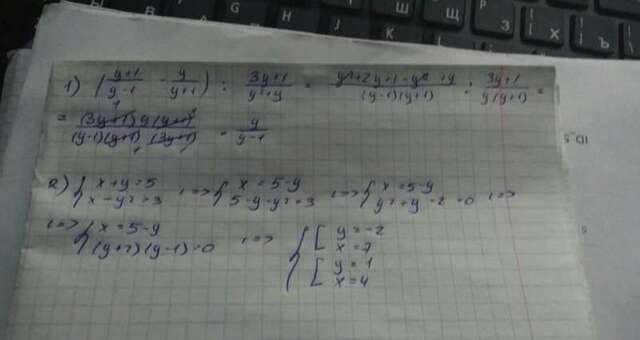 Ш Щ З Х Ъ
1) ( y+1/y-1 - y/y+1 ) : 3y+1/y²+y = y²+2y+1-y²+y/(y-1)(y+1) : 3y+1/y(y+1) =
= (3y+1) y (y+1)/(y-1)(y+1) (3y+1) = y/y-1
2) { x+y=5 x-y²=3 <=> { x=5-y 5-y-y²=3 <=> { x=5-y y²+y-2=0 <=>
<=> { x=5-y (y+2)(y-1)=0 <=> { [ y=-2 x=7 [ y=1 x=4